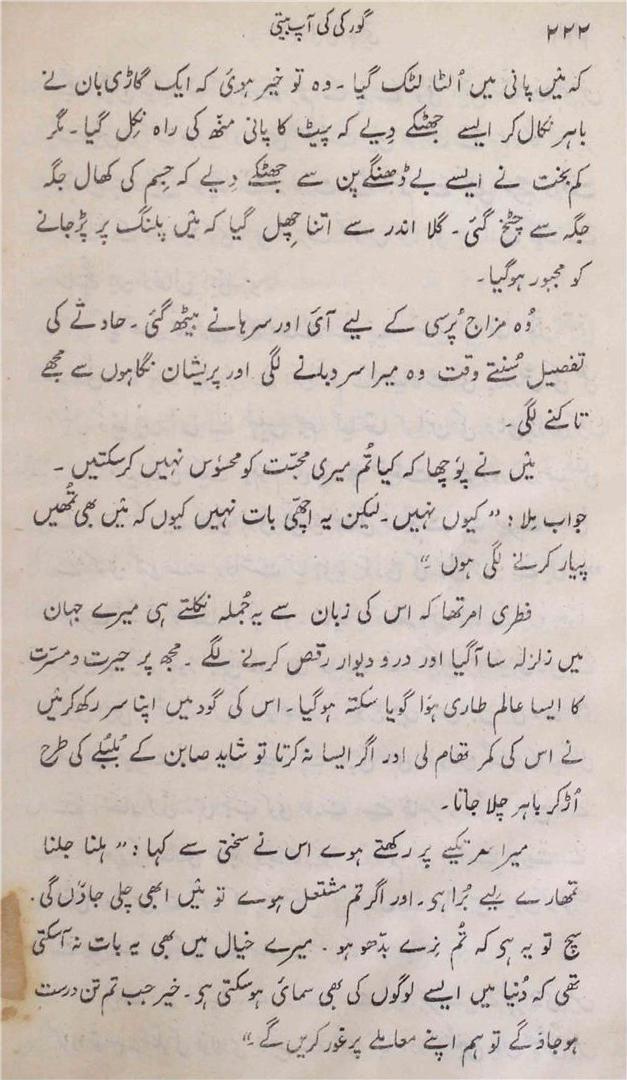 ۲۲۲ گورکی کی آپ بیتی
کہ میں پانی میں اُلٹا لٹک گیا ۔ وہ تو خیر ہوئ کہ ایک گاڑی بان نے
باہر نکال کر ایسے جھٹکے دِیے کہ پیٹ کا پانی منھ کی راہ نِکل گیا ۔ مگر
کم بخت نے ایسے بے ڈھنگے پن سے جھٹکے دِیے کہ جِسم کی کھال جگہ
جگہ سے چٹخ گئی ۔ گلا اندر سے اتنا چِھل گیا کہ میں پلنگ پر پڑ جانے
کو مجبور ہوگیا ۔
وُہ مزاج پُرسی کے لیے آئ اور سرہانے بیٹھ گئی ۔ حادثے کی
تفصیل سُنتے وقت وہ میرا سر دبانے لگی اور پریشان نگاہوں سے مجھے
تاکنے لگی ۔
میں نے پوچھا کہ کیا تُم میری محبّت کو محسوس نہیں کرسکتیں ۔
جواب مِلا : ” کیوں نہیں ۔ لیکن یہ اچھّی بات نہیں کیوں کہ میں بھی تُمھیں
پیار کرنے لگی ہوں “
فطری امر تھا کہ اس کی زبان سے یہ جُملہ نکلتے ہی میرے جہان
میں زلزلہ سا آگیا اور در و دیوار رقص کرنے لگے ۔ مجھ پر حیرت و مسرّت
کا ایسا عالم طاری ہؤا گویا سکتہ ہوگیا ۔ اس کی گود میں اپنا سر رکھ کر میں
نے اس کی کمر تھام لی اور اگر ایسا نہ کرتا تو شاید صابن کے بُلبُلے کی طرح
اُڑ کر باہر چلا جاتا ۔
میرا سر تکیے پر رکھتے ہوے اس نے سختی سے کہا : ” ہلنا جلنا
تمھارے لیے بُرا ہی ۔ اور اگر تم مشتعل ہوے تو میں ابھی چلی جاؤں گی ۔
سچ تو یہ ہی کہ تُم نِرے بدّھو ہو ۔ میرے خیال میں بھی یہ بات نہ آسکتی
تھی کہ دُنیا میں ایسے لوگوں کی بھی سمائ ہوسکتی ہی ۔ خیر جب تم تن درست
ہو جاؤ گے تو ہم اپنے معاملے پر غور کریں گے ۔“